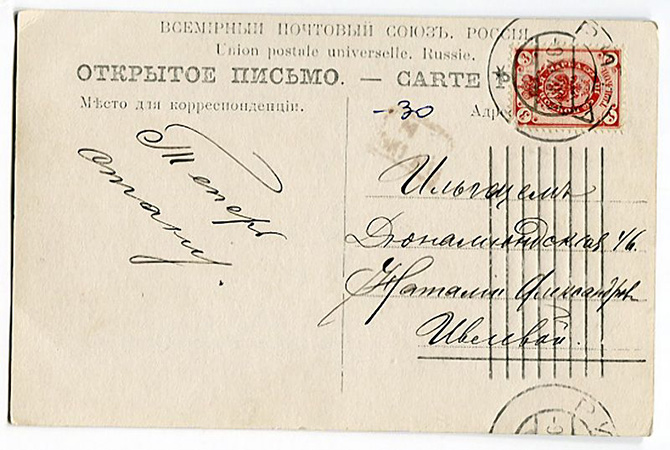 ВСЕМІРНЫЙ ПОЧТОВЫЙ СОЮЗЪ. РОССІЯ
Union postale universelle. Russie.
ОТКРЫТОЕ ПИСЬМО. — CARTE P
Мѣсто для корреспонденціи.
Адре
-30
3
3
3
Теперь
отдану.
Ильгоцемъ
Дюнамюндская 4/6.
Наталіи Александровнѣ
Ивелевой.
РИ